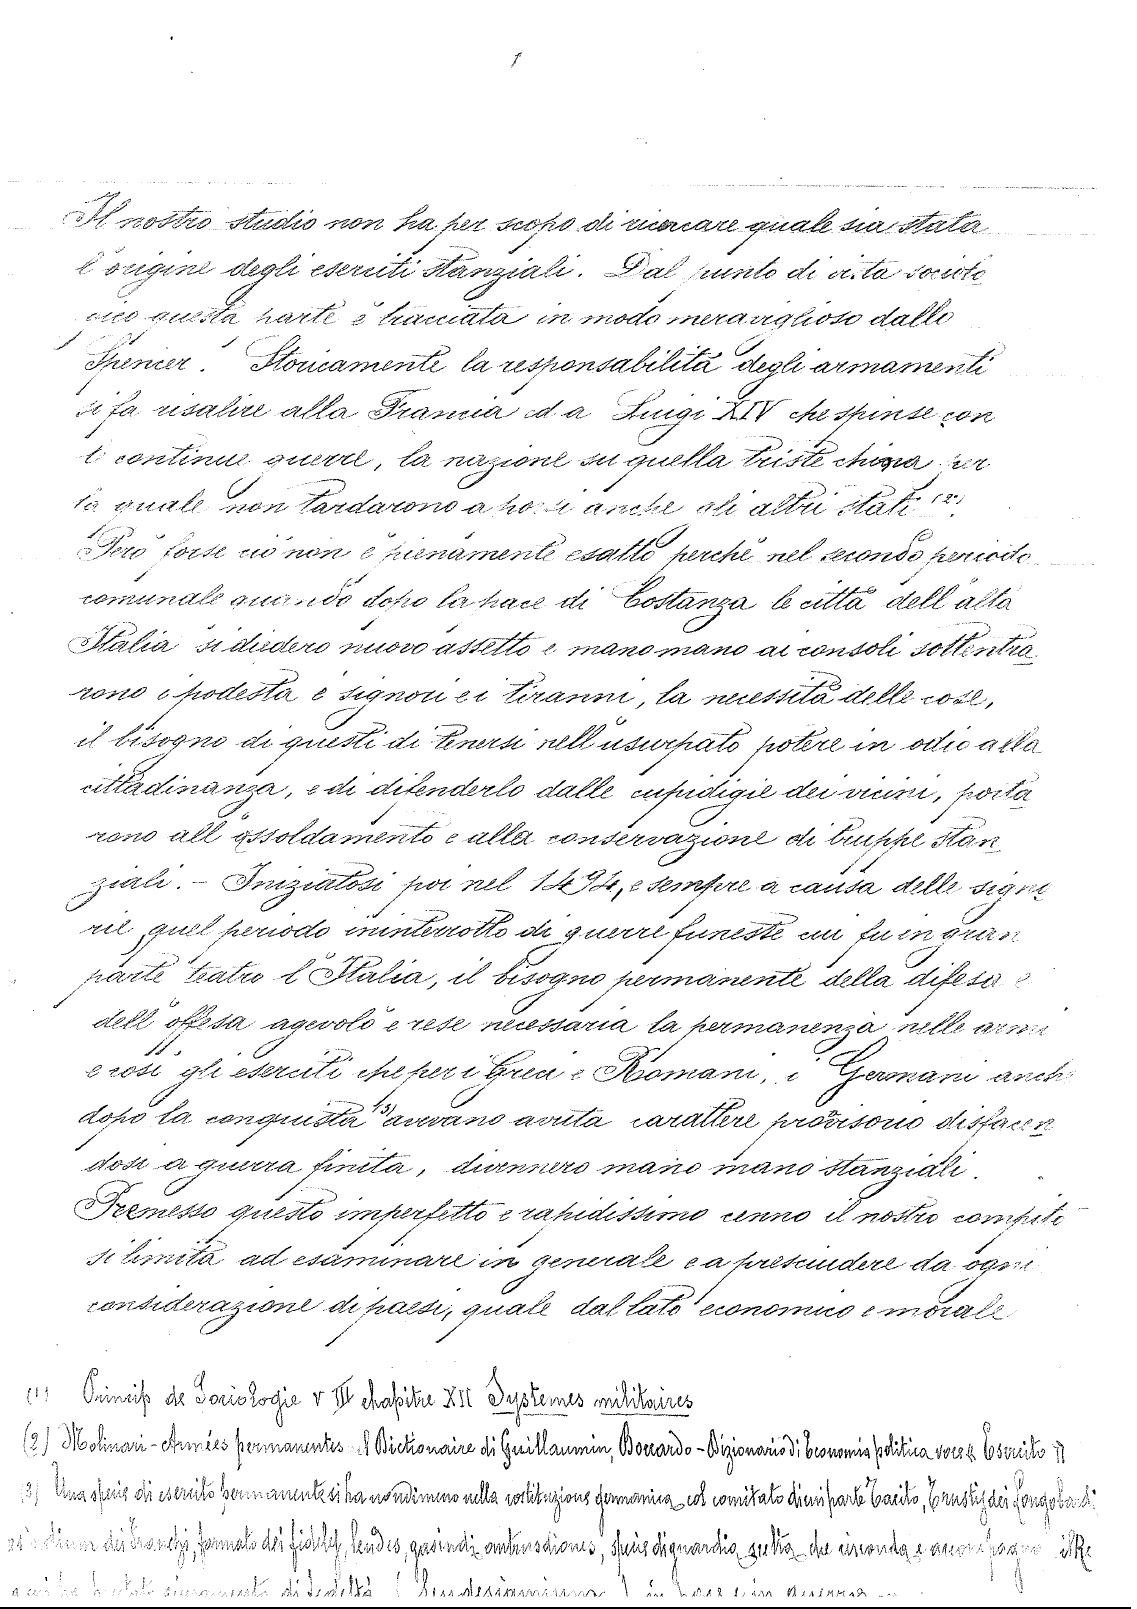 1
Il nostro studio non ha per scopo di ricercare quale sia stata
l'origine degli eserciti stanziali. Dal punto di vista sociolo
gico questa parte è tracciata in modo meraviglioso dallo
Spencer. Storicamente la responsabilità degli armamenti
si fa risalire alla Francia ed a Luigi XIV che spinse con
le continue guerre, la nazione su quella triste china per
la quale non tardarono a porsi anche gli altri stati (2).
Però forse ciò non è pienamente esatto perchè nel secondo periodo
comunale quando dopo la pace di Costanza le città dell'alta
Italia si diedero nuovo assetto e mano mano ai consoli sottentra
rono i podestà e signori e i tiranni, la necessità delle cose,
il bisogno di questi di tenersi nell'usurpato potere in odio alla
cittadinanza, e di difenderlo dalle cupidigie dei vicini, porta
rono all'assoldamento e alla conservazione di truppe stan
ziali. – Iniziatosi poi nel 1494, e sempre a causa delle signo
rie, quel periodo ininterrotto di guerre funeste cui fu in gran
parte teatro l'Italia, il bisogno permanente della difesa e
dell'offesa agevolò e rese necessaria la permanenza nelle armi
e così gli eserciti che per i Greci e Romani, i Germani anche
dopo la conquista (3) avevano avuta carattere provisorio disfacen
dosi a guerra finita, divennero mano mano stanziali.
Premesso questo imperfetto e rapidissimo cenno il nostro compito
si limita ad esaminare in generale e a prescindere da ogni
considerazione di paesi, quale dal lato economico e morale
(1) Princip de Sociologie v III chapitre XII Systemes militaires
(2) Molinari – Armées permanentes Dictionaire di Guillaumin, Boccardo – Dizionario di Economia politica voce Esercito
(3) Una specie di esercito permanente si ha nondimeno nella costituzione germanica col comitato di cui parla Tacito, dei Longobardi
dei Franchi, formato dei fideles, leudes, gasindi, antrusdiones, specie di guardia scelta che circonda e accompagna il Re
di fedeltà in